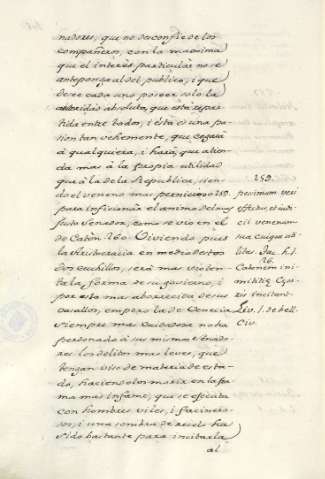 nadores, que no desconfie de los
compañeros, con la maxima
que el interés particular no se
anteponga al del publico, i que
dese cada uno poseer solo la
autoridad absoluta, que está repar
tida entre todos, i esta es una pa-
sion tan vehemente, que cegará
á qualquiera, i hará, que atien-
da mas á la propia utilidad
que á la de la Republica, sien-
do el veneno mas pernicioso 259
para inficionar el animo del mas
Senador, como se vio en el
de Catón. 260. Viviendo pues
la Aristocracia en medio destos
dos cuchillos, será mas violen-
ta la forma de su govierno, i
por esta mas aborrecida de sus
vasallos, empero la de Venecia
siempre mas cuidadosa no ha
perdonado á sus mismos Senado-
res los delitos mas leves, que
tengan viso de materia de esta-
do, haciendolos morir en la for
ma mas infame, que se executa
con hombres viles, i facinero-
sos, i una sombra de recelo ha
sido bastante para incitarla
al
259.
pessimum veri
affectus et judi
cii venenum
sua cuique uti
litas Tac. h. 1.
26.
Catonem ini
mititiq Cesa-
ris incitave-
Liv. 1. de bell.
Civ.